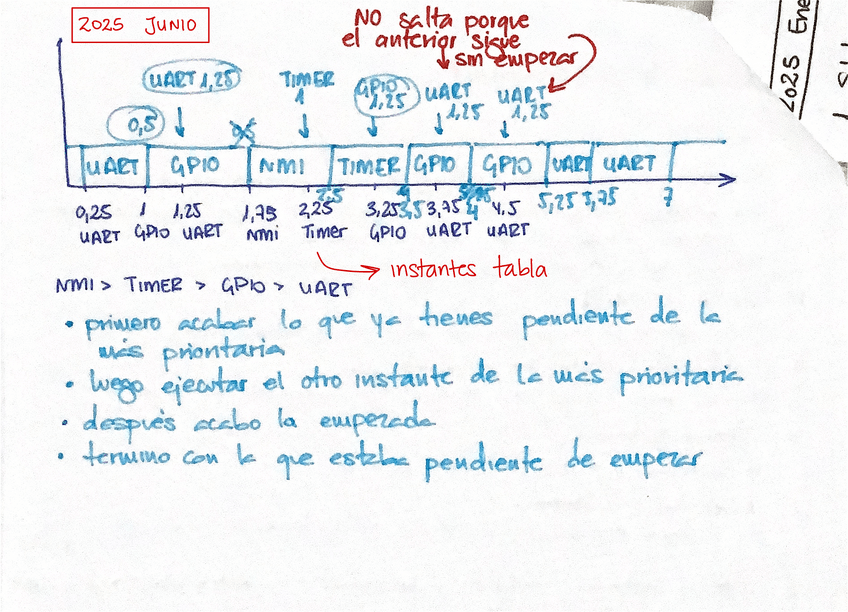 2025 JUNIO
NO salta porque
el anterior sigue
sin empezar
2025 Ene
UART 1,25
TIMER
1
GPIO
1,25
UART
1,25
UART
1,25
0,5
UART GPIO NMI TIMER GPIO GPIO UART UART
2,5 3,5 4 5,25 5,75 7
0,25 1 1,25 1,75 2,25 3,25 3,75 4,5
UART GPIO UART NMI Timer GPIO UART UART
instantes tabla
NMI > TIMER > GPIO > UART
• primero acabar lo que ya tienes pendiente de la
más prioritaria
• luego ejecutar el otro instante de la más prioritaria
• después acabo la empezada
• termino con la que estaba pendiente de empezar